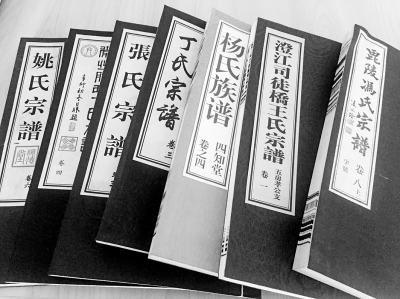 姚氏宗譜
卷六
卷四
張氏宗譜
丁氏宗譜
卷三
杨氏族谱
四知堂
卷之四
澄江司徒橋王氏宗譜
五房孝公支
卷一
毘陵馮氏宗譜
卷八上